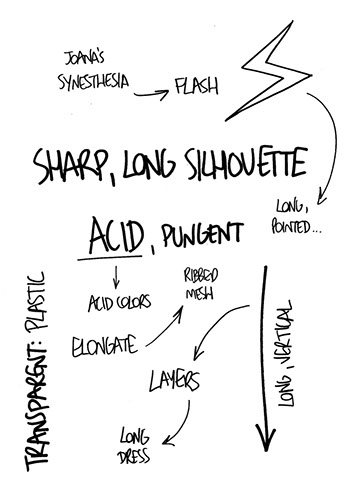 JOANA'S
SYNESTHESIA
FLASH
SHARP, LONG SILHOUETTE
LONG,
POINTED...
ACID, PUNGENT
ACID COLORS
RIBBED
MESH
ELONGATE
LAYERS
LONG
DRESS
LONG, VERTICAL
TRANSPARENT: PLASTIC